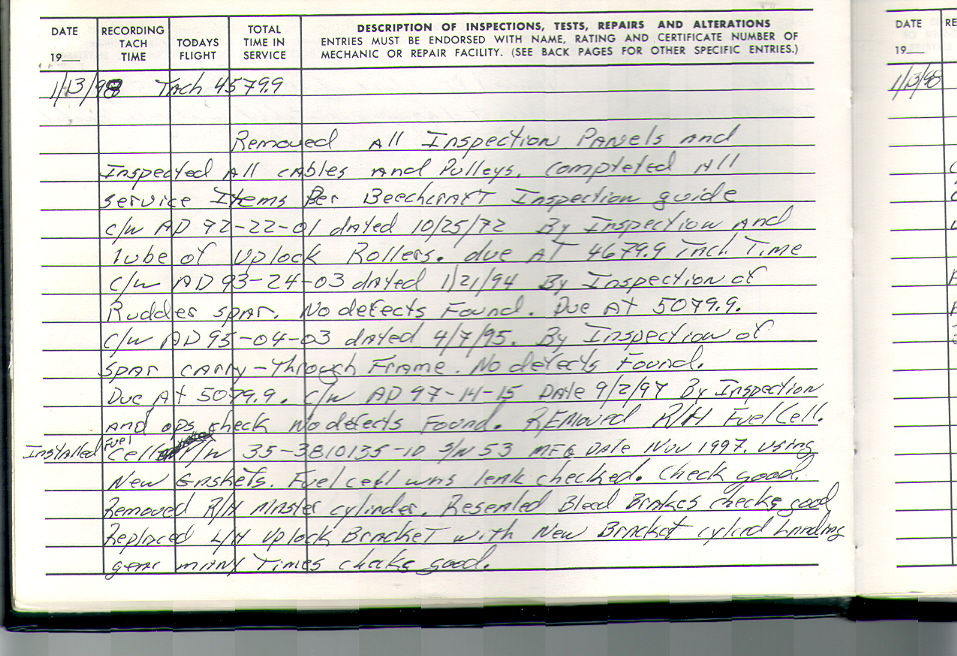 DATE
19__
RECORDING TACH TIME
TODAYS FLIGHT
TOTAL TIME IN SERVICE
DESCRIPTION OF INSPECTIONS, TESTS, REPAIRS AND ALTERATIONS
ENTRIES MUST BE ENDORSED WITH NAME, RATING AND CERTIFICATE NUMBER OF
MECHANIC OR REPAIR FACILITY. (SEE BACK PAGES FOR OTHER SPECIFIC ENTRIES.)
1/13/98 Tach 4579.9
Removed All Inspection Panels and
Inspected All cables And Pulleys. completed All
service Items Per Beechcraft Inspection guide
c/w AD 72-22-01 dated 10/25/72 By Inspection And
lube of Uplock Rollers. due AT 4679.9 Tach Time
c/w AD 93-24-03 dated 1/21/94 By Inspection of
Rudder spar. No defects Found. Due At 5079.9.
c/w AD 95-04-03 dated 4/7/95. By Inspection of
spar carry-through Frame. No defects Found.
Due At 5079.9. c/w AD 97-14-15 Date 9/2/97 By Inspection
And ops check No defects Found. R/H Fuel Cell.
Installed Fuel Cell P/N 35-3810135-10 S/N 53 MFG Date Nov 1997. using
New Gaskets. Fuel cell was leak checked. check good.
Removed R/H Master cylinder. Resealed Bleed Brakes checks good
Replaced L/H Uplock Bracket with New Bracket cylcld Landing
gear many Times checks good.
DATE
19__
RE
1/13/98